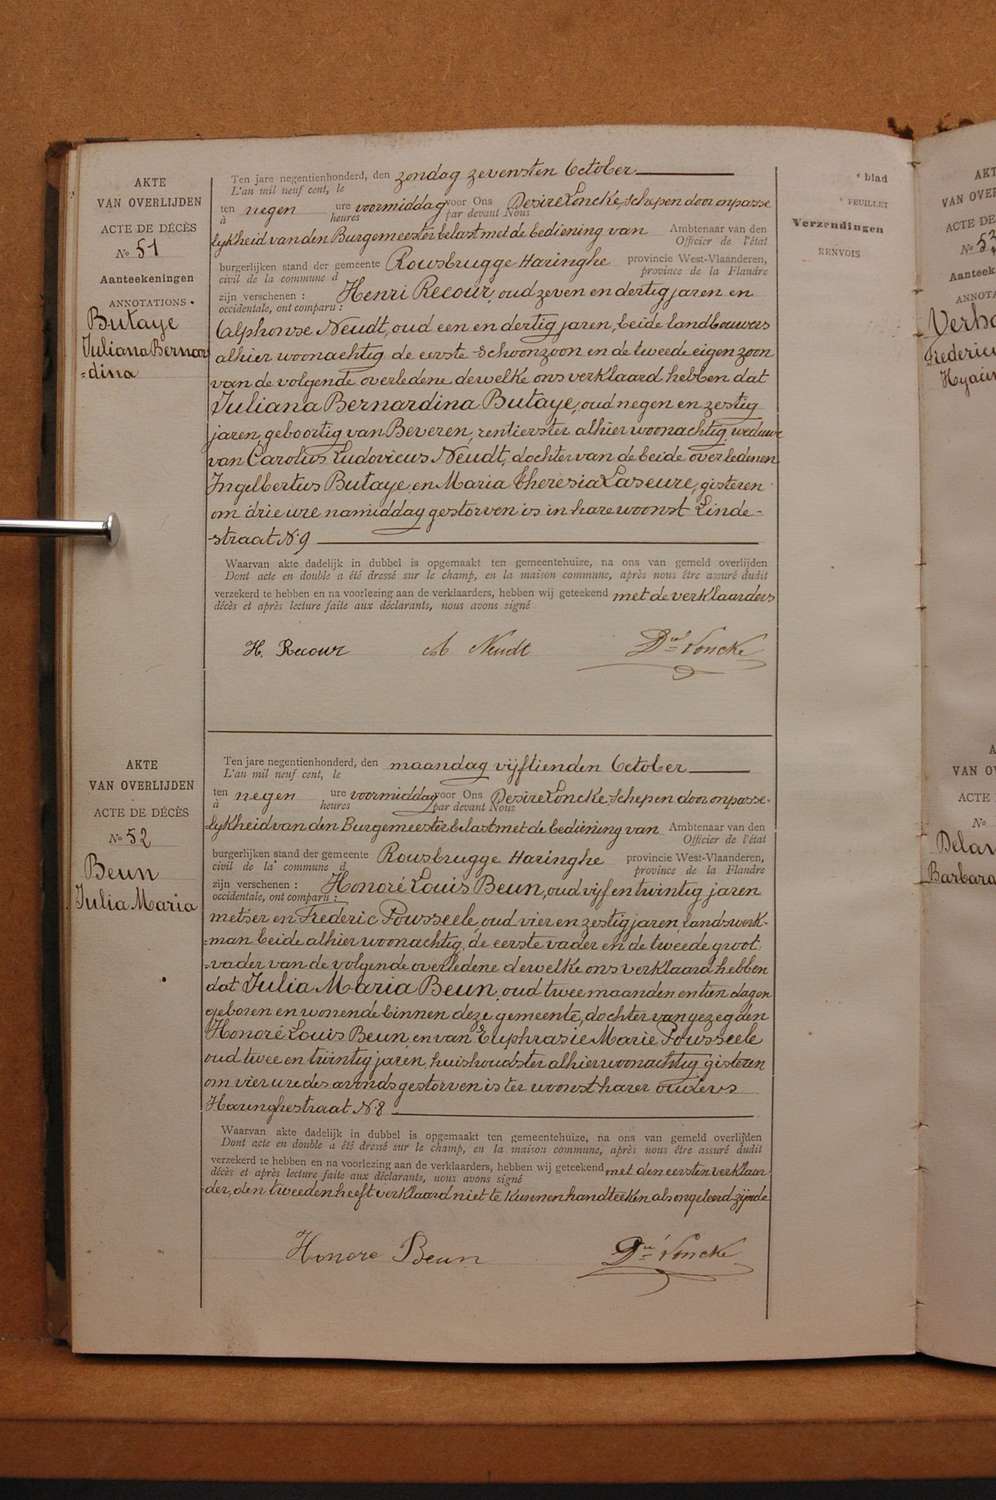 AKTE
VAN OVERLIJDEN
ACTE DE DÉCÈS
No 51
Aanteekeningen
ANNOTATIONS.
Butaye
Juliana Bernar
=dina
Ten jare negentienhonderd, den zondag zevensten October
L'an mil neuf cent, le
ten negen ure voormiddag voor Ons Desiré Loncke, Schepen door onpasse
à heures par devant Nous
lijkheid van den Burgemeester belast met de bediening van Ambtenaar van den
Officier de l'état
burgerlijken stand der gemeente Rousbrugge Haringhe provincie West-Vlaanderen,
civil de la commune d province de la Flandre
zijn verschenen : Henri Recour, oud zeven en dertig jaren en
occidentale, ont comparu :
Alphonse Neudt, oud een en dertig jaren, beide landbouwers
alhier woonachtig de eerste schoonzoon en de tweede eigen zoon
van de volgende overledene dewelke ons verklaard hebben dat
Juliana Bernardina Butaye, oud negen en zestig
jaren, geboortig van Beveren, rentierster alhier woonachtig, weduwe
van Carolus Ludovicus Neudt, dochter van de beide overledenen
Ingelbertus Butaye en Maria Theresia Laseure, gisteren
om drie ure namiddag gestorven is in hare woonst Linde-
-straat No 9
Waarvan akte dadelijk in dubbel is opgemaakt ten gemeentehuize, na ons van gemeld overlijden
Dont acte en double a été dressé sur le champ, en la maison commune, après nous être assuré dudit
verzekerd te hebben en na voorlezing aan de verklaarders, hebben wij geteekend met de verklaarders
décès et après lecture faite aux déclarants, nous avons signé
H. Recour A Neudt Dré Loncke
AKTE
VAN OVERLIJDEN
ACTE DE DÉCÈS
No 52
Beun
Julia Maria
Ten jare negentienhonderd, den maandag vijftienden October
L'an mil neuf cent, le
ten negen ure voormiddag voor Ons Desiré Loncke, Schepen door onpasse-
à heures par devant Nous
lijkheid van den Burgemeester belast met de bediening van Ambtenaar van den
Officier de l'état
burgerlijken stand der gemeente Rousbrugge Haringhe provincie West-Vlaanderen,
civil de la commune d province de la Flandre
zijn verschenen : Honoré Louis Beun, oud vijf en twintig jaren
occidentale, ont comparu :
metser en Frederic Pousseele, oud vier en zestig jaren, landswerk-
=man beide alhier woonachtig, de eerste vader en de tweede groot
=vader van de volgende overledene dewelke ons verklaard hebben
dat Julia Maria Beun, oud twee maanden en tien dagen
geboren en wonende binnen deze gemeente, dochter van gezegden
Honoré Louis Beun, en van Euphrasie Marie Pousseele
oud twee en twintig jaren, huishoudster alhier woonachtig gisteren
om vier ure des avonds gestorven is ter woonst harer ouders
Haringhestraat No 8
Waarvan akte dadelijk in dubbel is opgemaakt ten gemeentehuize, na ons van gemeld overlijden
Dont acte en double a été dressé sur le champ, en la maison commune, après nous être assuré dudit
verzekerd te hebben en na voorlezing aan de verklaarders, hebben wij geteekend met den eersten verklaar
décès et après lecture faite aux déclarants, nous avons signé
der, den tweeden heeft verklaard niet te kunnen handteeken als ongeleerd zijnde
Honore Beun Dré Loncke
blad
FEUILLET
Verzendingen
RENVOIS
AKT
VAN OVE
ACTE DE
No 53
Aanteek
ANNOTA
Verha
Frederic
Hyacin
A
VAN O
ACTE
No
Delan
Barbara